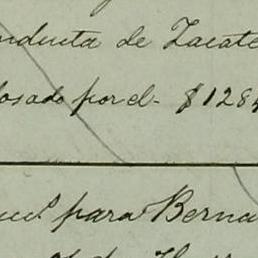 nducta de Zacate
osado por el - $1284
para Berna